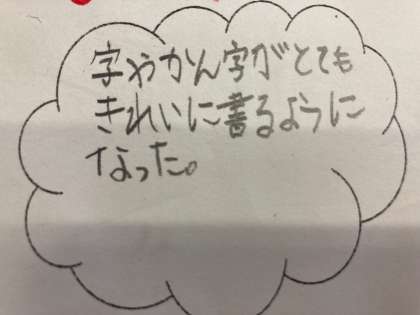 字やかん字がとても
きれいに書るように
なった。